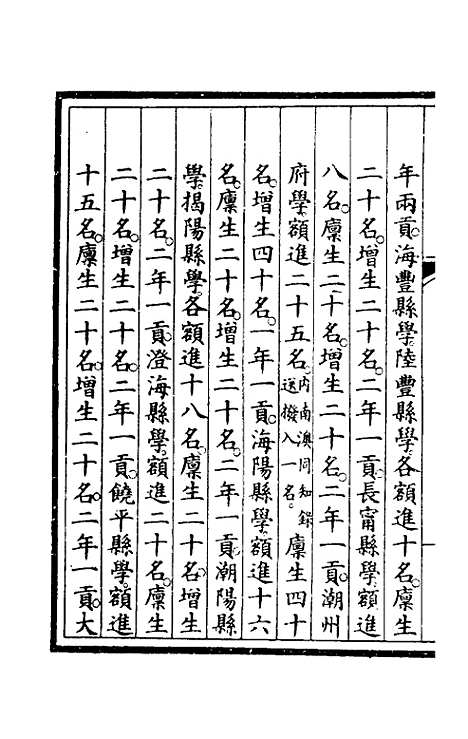 年兩貢。海豐縣學。陸豐縣學。各額進十名。廩生
二十名。增生二十名。二年一貢。長甯縣學。額進
八名。廩生二十名。增生二十名。二年一貢。潮州
府學。額進二十五名。內南澳同知錄送撥入一名。廩生四十
名。增生四十名。一年一貢。海陽縣學。額進十六
名。廩生二十名。增生二十名。二年一貢。潮陽縣
學。揭陽縣學。各額進十八名。廩生二十名。增生
二十名。二年一貢。澄海縣學。額進二十名。廩生
二十名。增生二十名。二年一貢。饒平縣學。額進
十五名。廩生二十名。增生二十名。二年一貢。大